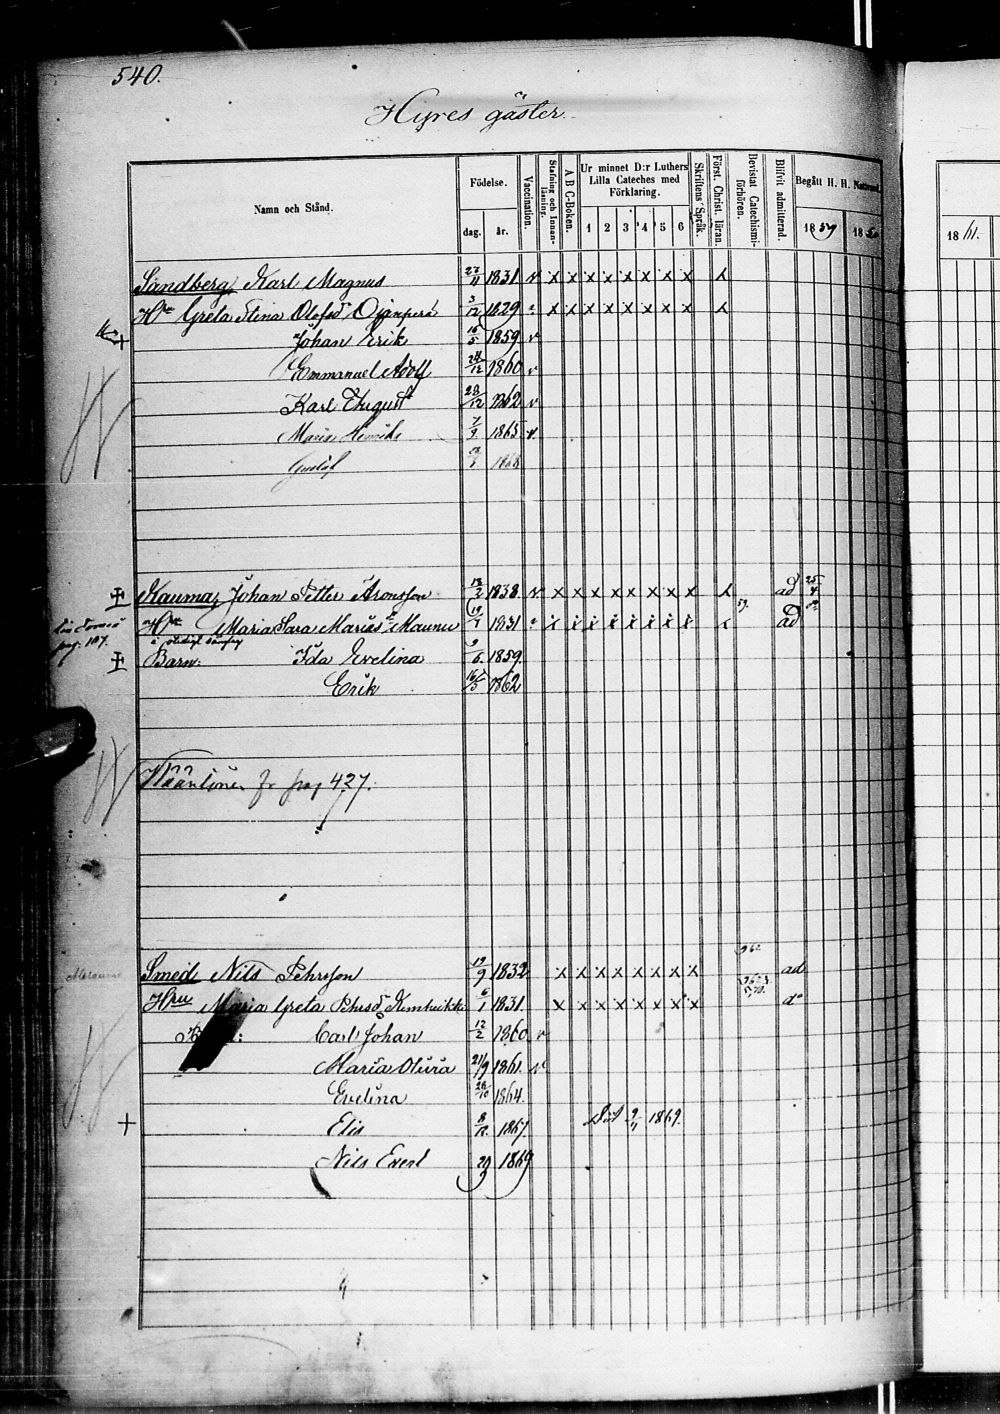 540.
Hyres gäster.
Namn och Stånd.
Födelse.
dag. år.
Vaccination.
Stafning och Innanläsning.
A B C-Boken.
Ur minnet D:r Luthers Lilla Cateches med Förklaring.
1 2 3 4 5 6
Skriftens Språk.
Först. Christ. läran.
Bevistat Catechismiförhören.
Blifvit admitterad.
Begått H. H. Nattvard.
1859 18
1861.
Sandberg Karl Magnus 27/11 1831 v x x x x x x x x
Hu Greta Stina Olofsdr Ojanperä 3/12 1829 x x x x x x x x
Johan Erik 16/5 1859 v
Emmanuel Adolf 24/12 1860 v
Karl August 28/12 1862 v
Maria Henrika 7/9 1865 v
Gustaf 1868
Kauma Johan Petter Aronsson 13/2 1838 v x x x x x x x x ad 25/4
Hu Maria Sara Mariasdr Maunu 19/1 1831 x x x x x x x x 59. ad
pag. 187.
Barn: Ida Evelina 9/6 1859.
Erik 16/5 1862
Väänlöne fr pag 427.
Smed Nils Pehrsson 19/9 1832 x x x x x x x x ad
Hu Maria Greta Pehrsdr 6/1 1831. x x x x x x x x do
Carl Johan 12/2 1860 v
Maria Olivia 21/9 1861. v
Evelina 26/10 1864.
Elis 8/12 1867. Död 9/11 1869.
Nils Evert 29/9 1869